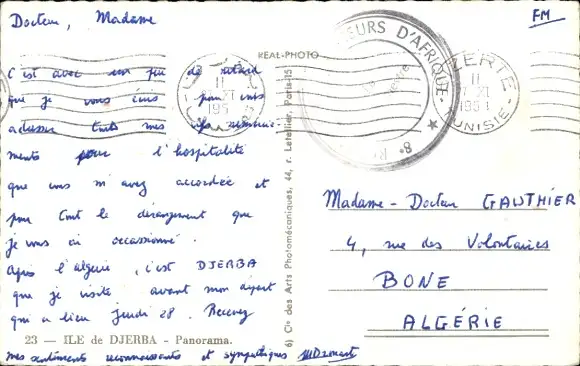 Docteur, Madame
FM
REAL-PHOTO
C'est avec un peu de retard
que je vous écris pour vous
adresser tous mes remercie-
ments pour l'hospitalité
que vous m'avez accordée et
pour tout le dérangement que
je vous ai occasionné.
Après l'algérie, c'est DJERBA
que je visite avant mon départ
qui a lieu jeudi 28. Recevez
23 — ILE de DJERBA - Panorama.
mes sentiments reconnaissants et sympathiques
6) Cie des Arts Photomécaniques, 44, r. Letellier, Paris-15
EURS D'AFRIQUE
8e R
11
XI
195
BIZERTE
11
XI
195
TUNISIE
Madame - Docteur GAUTHIER
4, rue des Volontaires
BONE
ALGÉRIE